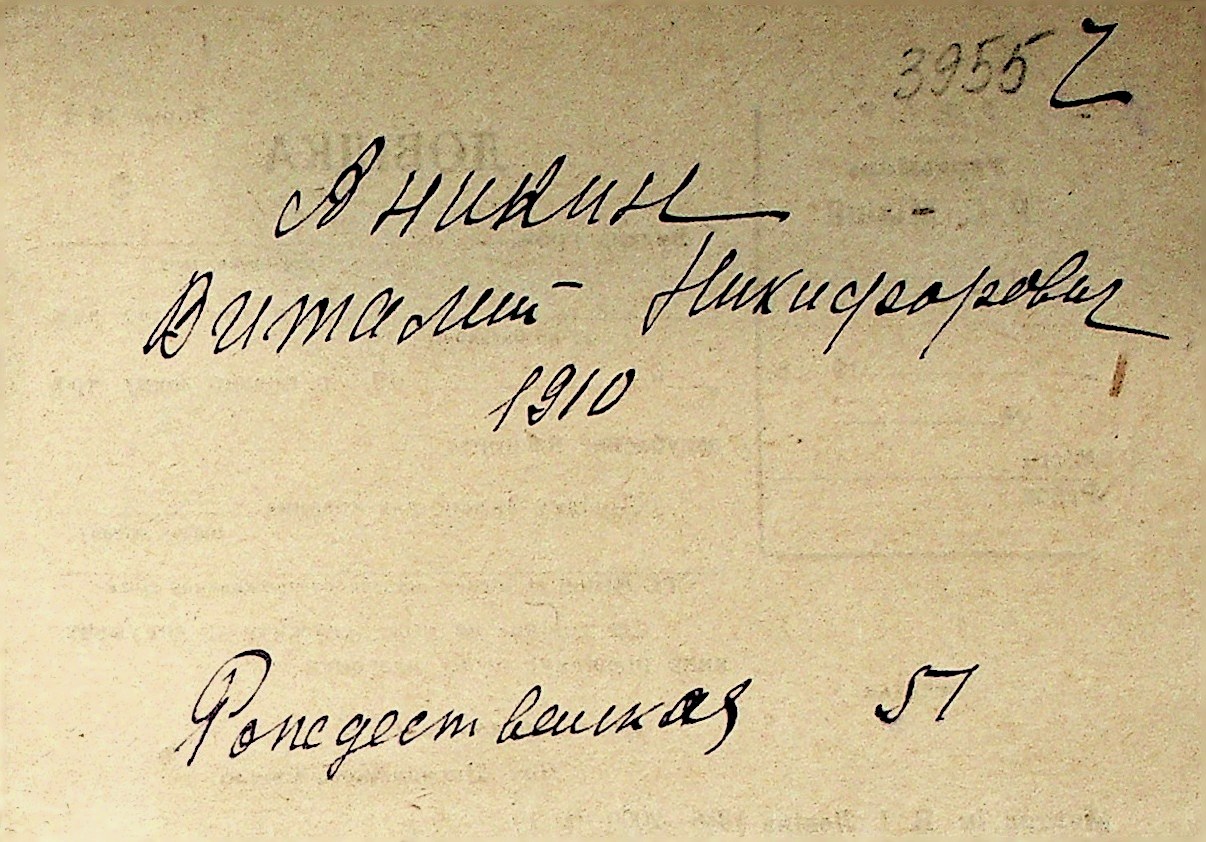 3955
Аникин
Виталий Никифорович
1910
Рождественская 51